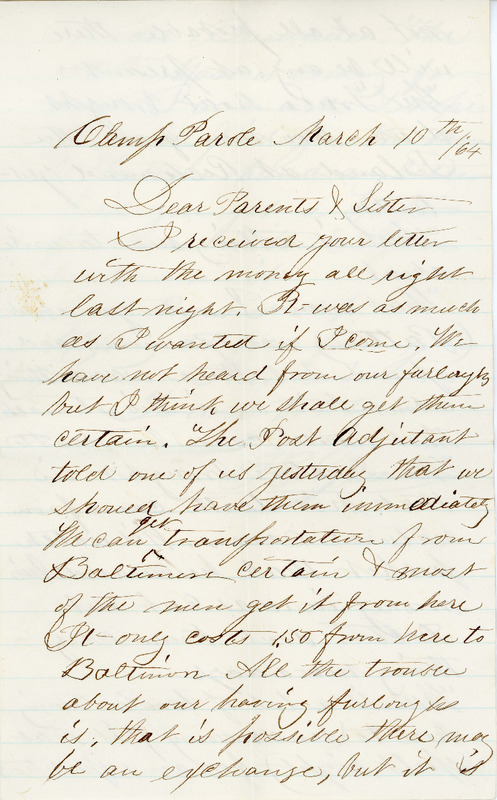 Camp Parole March 10th/64
Dear Parents & Sister
I received your letter
with the money all right
last night. It was as much
as I wanted if I come. We
have not heard from our furloughs
but I think we shall get them
certain. The Post Adjutant
told one of us yesterday that we
should have them immediately
We can get transportation from
Baltimore certain & most
of the men get it from here
It only costs 1.50 from here to
Baltimore All the trouble
about our having furloughs
is, that is possible there may
be an exchange, but it is